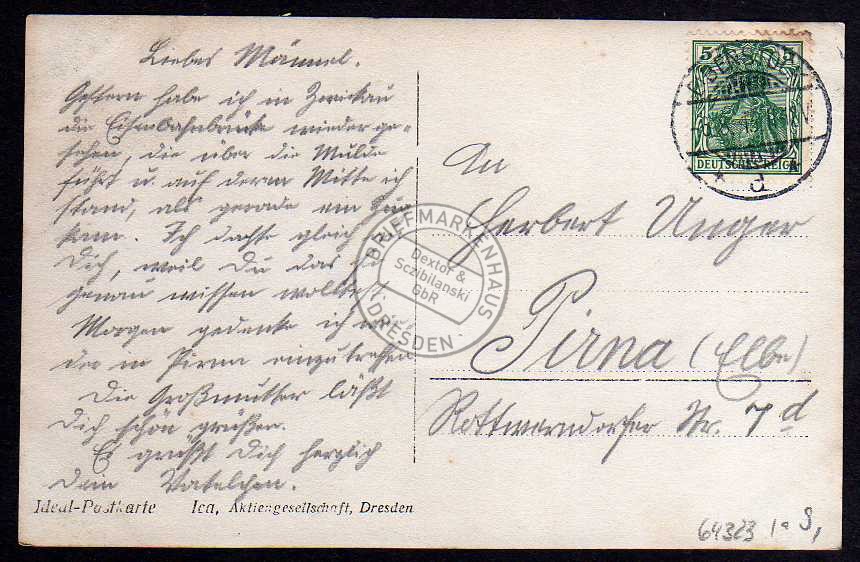 Liebes Männel.
Gestern habe ich in Zwickau
die Eisenbahnbrücke wieder ge-
sehen, die über die Mulde
führt u. auf deren Mitte ich
stand, als gerade ein Zug
kam. Ich dachte gleich an
Dich, weil Du das so
genau wissen wolltest.
Morgen gedenke ich wie-
der in Pirna einzutreffen
Die Großmutter läßt
Dich schön grüßen.
Es grüßt Dich herzlich
Dein Vatelchen.
Ideal-Postkarte Ica, Aktiengesellschaft, Dresden
5 5
DEUTSCHES REICH
d
An
Herbert Unger
Pirna (Elbe)
Rottwerndorfer Str. 7 d
BRIEFMARKENHAUS
Dextor &
Sczibilanski
GbR
DRESDEN
64323